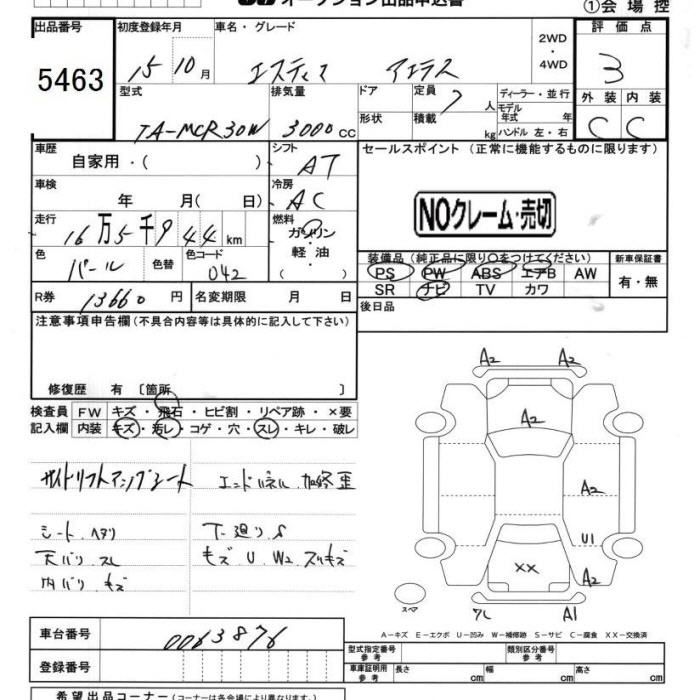 オークション出品申込書
①会場控
出品番号
5463
初度登録年月
15 10月
車名・グレード
エスティマ アエラス
2WD
・
4WD
評価点
3
外装 内装
C C
型式
TA-MCR30W
排気量
3000cc
ドア
形状
定員 7人
積載 kg
ディーラー・並行
モデル年式 年
ハンドル 左・右
車歴
自家用・( )
シフト
AT
車検
年 月( 日)
冷房
AC
走行
16万5千944km
燃料
ガソリン
軽油
・( )
色
パール
色替
色コード
042
R券 13660円
名変期限 月 日
セールスポイント (正常に機能するものに限ります)
NOクレーム・売切
装備品(純正品に限り○をつけてください)
PS PW ABS エアB AW
SR ナビ TV カワ
新車保証書
有・無
後日品
注意事項申告欄(不具合内容等は具体的に記入して下さい)
修復歴 有〔箇所 〕
検査員 FW キズ・飛石・ヒビ割・リペア跡・×要
記入欄 内装 キズ・汚レ・コゲ・穴・スレ・キレ・破レ
サイドリフトアップシート
エンドパネル 加修歪
シート ヘタリ
下廻り S
天バリ スレ
キズ U W2 スリキズ
内バリ キズ
A2 A2
A2
A2
U1
XX
A2
スペア
A1
A−キズ E−エクボ U−凹み W−補修跡 S−サビ C−腐食 XX−交換済
車台番号
0063876
登録番号
型式指定番号 参考
類別区分番号 参考
車庫証明用 参考
長さ cm
幅 cm
高さ cm
希望出品コーナー(コーナーは各会場により異なります)